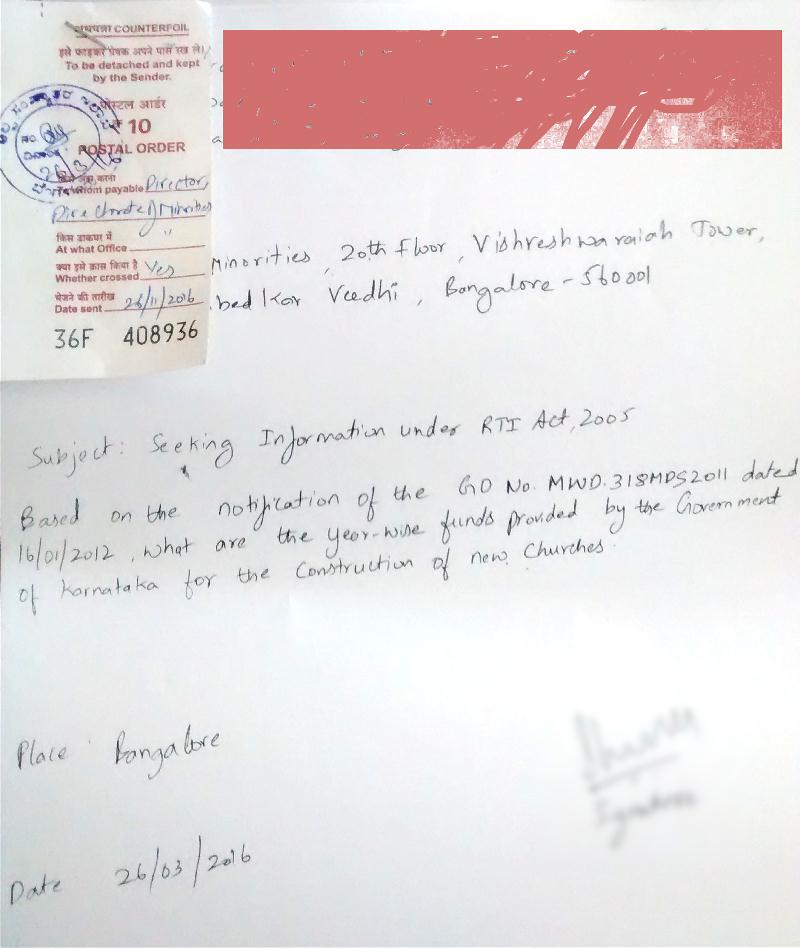 COUNTERFOIL
इसे फाड़कर प्रेषक अपने पास रख ले।
To be detached and kept
by the Sender.
पोस्टल आर्डर
₹ 10
POSTAL ORDER
To whom payable Director,
Directorate of Minorities
किस डाकघर में
At what Office "
क्या इसे क्रास किया है
Whether crossed Yes
भेजने की तारीख
Date sent 26/11/2016
36F 408936
Minorities, 20th Floor, Vishreshwaraiah Tower,
bedkar Veedhi, Bangalore - 560001
Subject: Seeking Information under RTI Act, 2005
Based on the notification of the GO No. MWD.318MDS2011 dated
16/01/2012, what are the year-wise funds provided by the Government
of Karnataka for the Construction of new Churches.
Place Bangalore
Date 26/03/2016